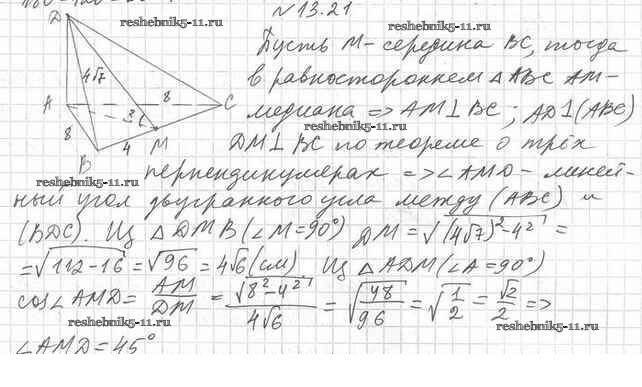 №13.21
reshebnik5-11.ru
reshebnik5-11.ru
D
4√7
A
8
C
8
3
B
4
M
Пусть M - середина BC, тогда
в равностороннем △ABC AM -
медиана => AM⊥BC; AD⊥(ABC)
reshebnik5-11.ru
DM⊥BC по теореме о трёх
перпендикулярах => ∠AMD - линей-
reshebnik5-11.ru
ный угол двугранного угла между (ABC) и
(BDC). Из △DMB (∠M=90°) DM = √(4√7)²-4² =
= √112-16 = √96 = 4√6 (см) Из △ADM (∠A=90°)
cos∠AMD = AM/DM = √8²-4²/4√6 = √48/96 = √1/2 = √2/2 =>
reshebnik5-11.ru
reshebnik5-11.ru
∠AMD = 45°